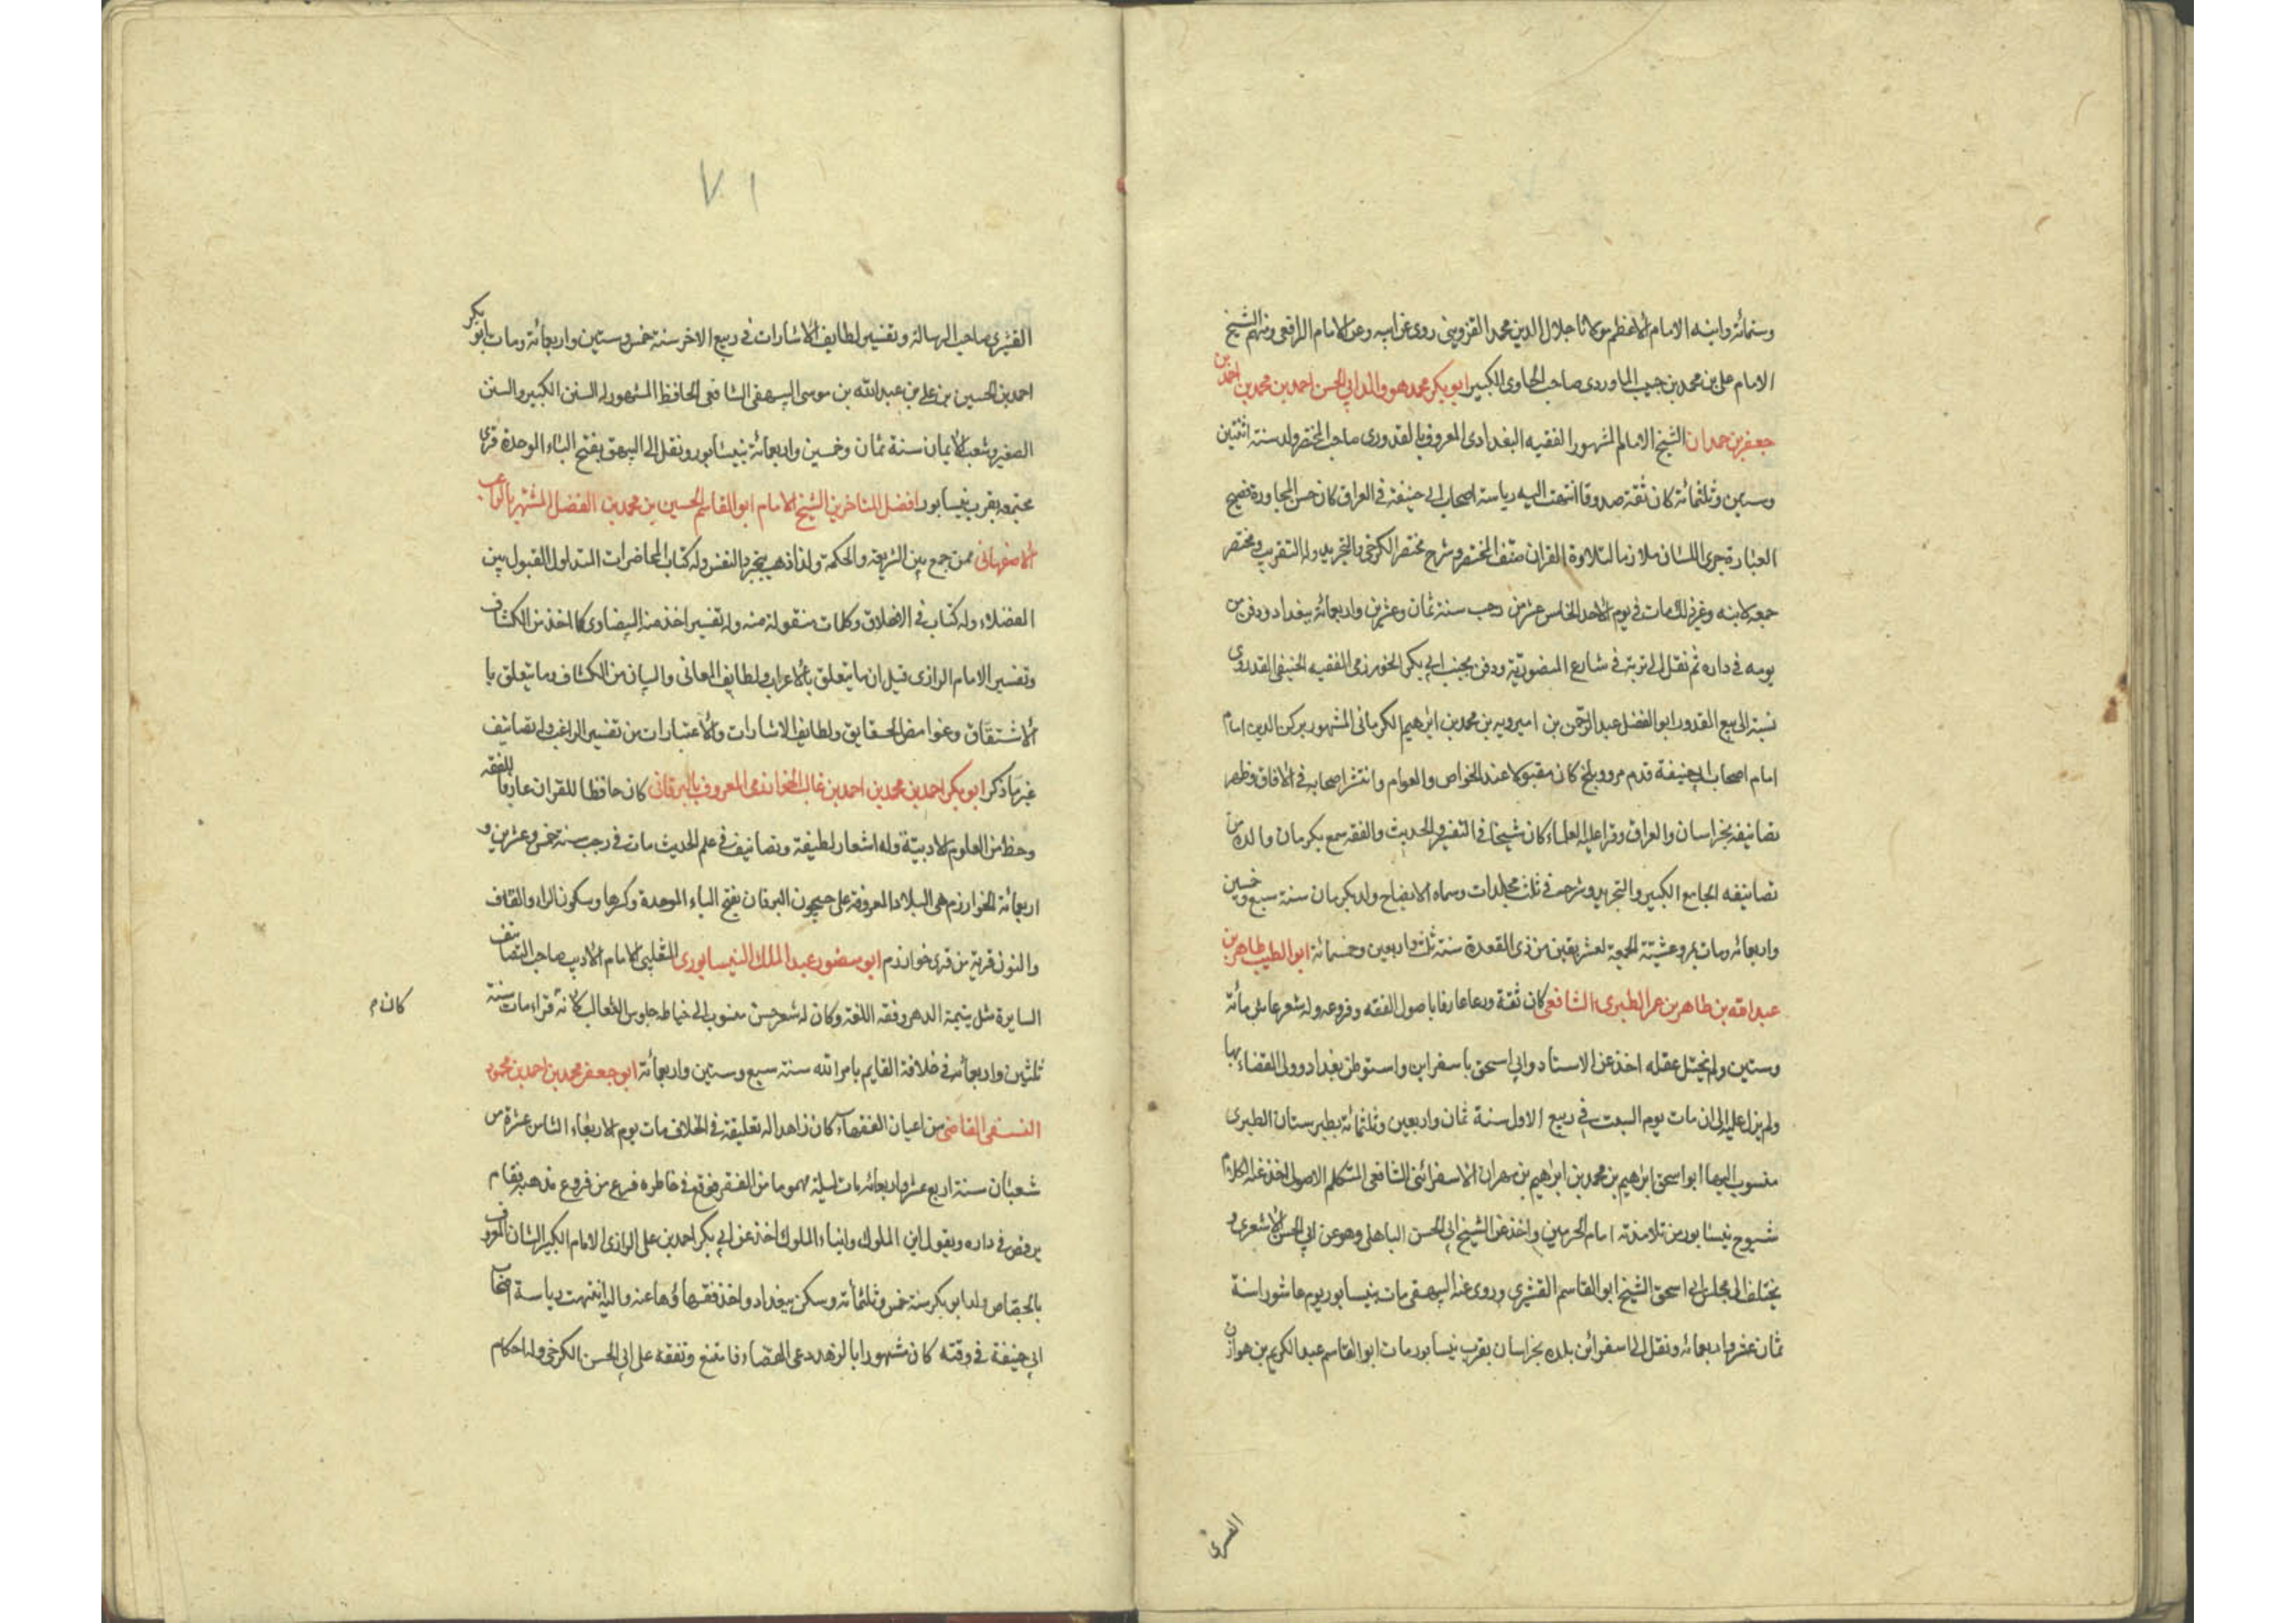 وستمائة وابنه الامام الاعظم مولانا جلال الدين محمد القزويني روى عن ابيه وعن الامام الرافعي ومنهم الشيخ
الامام على بن محمد بن حبيب الماوردى صاحب الحاوى الكبير ابو بكر محمد هو والد ابي الحسن احمد بن محمد بن احمد بن
جعفر بن حمدان الشيخ الامام المشهور الفقيه البغدادى المعروف بالقدورى صاحب المختصر ولد سنة اثنتين
وستين وثلثمائة كان ثقة صدوقا انتهت اليه رياسة اصحاب ابي حنيفة في العراق كان حسن العبارة فصيح
العبارة جرى اللسان ملازما لتلاوة القران صنف المختصر وشرح مختصر الكرخي والتجريد وله التقريب ومختصر
جمعه لابنه وغير ذلك مات في يوم الاحد الخامس عشر من رجب سنة ثمان وعشرين واربعمائة ببغداد ودفن من
يومه في داره ثم نقل الى تربة في شارع المنصورية ودفن بجنب ابي بكر الخوارزمى الفقيه الحنيفى القدورى
نسبة الى بيع القدور ابو الفضل عبد الرحمن بن اميرويه بن محمد بن ابرهيم الكرمانى المشهور بركن الدين امام
امام اصحاب ابي حنيفة قدم مرو وبلخ كان مقبولا عند الخواص والعوام وانتشر اصحابه في الافاق وظهر
تصانيفه بخراسان والعراق وقرا عليه العلماء كان شيخا في التفسير والحديث والفقه سمع بكرمان والده من
تصانيفه الجامع الكبير والتجريد وشرحه في ثلث مجلدات وسماه الايضاح ولد بكرمان سنة سبع وخمسين
واربعمائه ومات بمرو عشيّة الجمعة لعشر بقين من ذى القعدة سنة ثلث واربعين وخمسمائة ابو الطيب طاهر بن
عبد الله بن طاهر بن عمر الطبرى الشافعى كان ثقة ورعا عارفا باصول الفقه وفروعه وله شعر عاش مائة
وستين ولم يختل عقله اخذ عن الاستاد وابي اسحق باسفراين واستوطن بغداد وولى القضاء بها
ولم يزل عليه الى ان مات يوم السبت في ربيع الاول سنة ثمان واربعين وثلثمائة بطبرستان الطبرى
منسوب اليها ابو اسحق ابرهيم بن محمد بن ابرهيم بن مهران الاسفرائنى الشافعى المتكلم الاصولى اخذ عنه الكلام
شيوخ نيسابور من تلامذته امام الحرمين واخذ عن الشيخ ابي الحسن الباهلى وهو عن ابي الحسن الاشعرى و
يختلف الى مجلس ابي اسحق الشيخ ابو القاسم القشيرى وروى عنه البيهقى مات بنيسابور يوم عاشورا سنة
ثمان عشر واربعمائه ونقل الى اسفرائن بلدة بخراسان بقرب نيسابور مات ابو القاسم عبد الكريم بن هوازن
القشيرى
٧١
القشيرى صاحب الرسالة وتفسير لطايف الاشارات في ربيع الاخر سنة خمس وستين واربعمائة ومات ابو بكر
احمد بن الحسين بن على بن عبد الله بن موسى البيهقى الشافعى الحافظ المشهور له السنن الكبير والسنن
الصغير وشعب الايمان سنة ثمان وخمسين واربعمائة بنيسابور ونقل الى البيهق بفتح الباء الموحدة قرى
مجتمعه بقرب نيسابور افضل المتاخرين الشيخ الامام ابو القاسم الحسين بن محمد بن الفضل المشتهر بالراغب
الاصفهانى ممن جمع بين الشريعة والحكمة ولذا ذهب بتجرد النفس وله كتاب المحاضرات المتداول المقبول بين
الفضلاء وله كتاب في الاخلاق وكلمات منقولة منه وله تفسير اخذ منه البيضاوى كما اخذ من الكشاف
وتفسير الامام الرازى قيل ان ما يتعلق بالاعراب ولطايف المعانى والبيان من الكشاف وما يتعلق با
الاشتقاق وغوامض الحقايق ولطايف الاشارات والاعتبارات من تفسير الراغب وله تصانيف
غير ما ذكر ابو بكر احمد بن محمد بن احمد بن غالب الخوارزمى المعروف بالبرقانى كان حافظا للقران عارفا بالفقه
وحظ من العلوم الادبيّة وله اشعار لطيفة وتصانيف في علم الحديث مات في رجب سنة خمس وعشرين و
اربعمائة الخوارزم هى البلاد المعروفة على جيحون البرقان بفتح الباء الموحدة وكسرها وسكون الراء والقاف
والنون قرية من قرى خوارزم ابو منصور عبد الملك النيسابورى الثعلبى الامام الاديب صاحب التصانيف
السايرة مثل يتيمة الدهر وفقه اللغة وكان له شعر حسن منسوب الى خياطه جلوس الثعالب لانه فراء مات سنة
كان م
ثلثين واربعمائه في خلافة القايم بامر الله سنة سبع وستين واربعمائة ابو جعفر محمد بن احمد بن محمود
النسفى القاضى من اعيان الفقهاء كان زاهدا له تعليقة في الخلاف مات يوم الاربعاء الثامن عشرة من
شعبان سنة اربع عشر واربعمائه بات ليلة مهموما من الفقر فوقع في خاطره فرع من فروع مذهبه فقام
يرقص في داره ويقول اين الملوك وابناء الملوك اخذ عن ابي بكر احمد بن على الرازى الامام الكبير الشان المعروف
بالجصاص ولد ابو بكر سنة خمس وثلثمائة وسكن ببغداد واخذ فقهاؤها عنه واليه انتهت رياسة اصحاب
ابي حنيفة في وقته كان مشهورا بالزهد دعى للقضاء فامتنع وتفقه على ابي الحسن الكرخى وله احكام